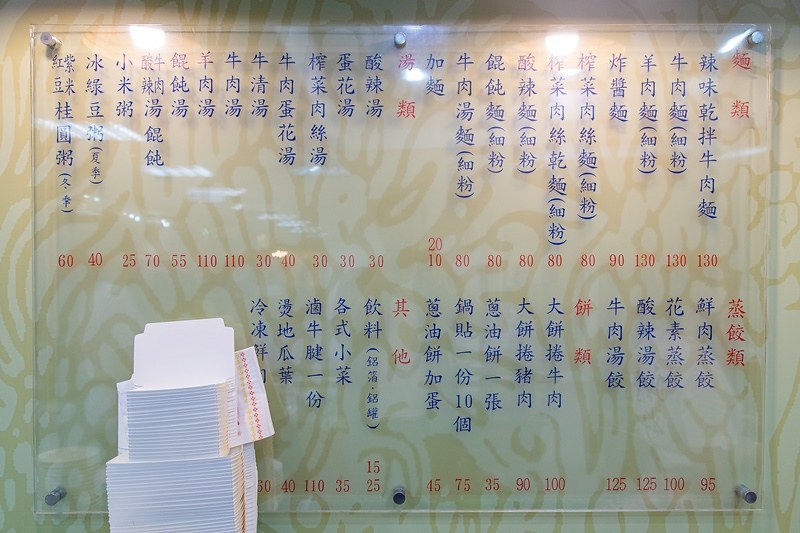 麵類
辣味乾拌牛肉麵 130
牛肉麵(細粉) 130
羊肉麵(細粉) 130
炸醬麵 90
榨菜肉絲麵(細粉) 80
榨菜肉絲乾麵(細粉) 80
酸辣麵(細粉) 80
餛飩麵(細粉) 80
牛肉湯麵(細粉) 80
加麵 20 10
湯類
酸辣湯 30
蛋花湯 30
榨菜肉絲湯 30
牛肉蛋花湯 40
牛清湯 30
牛肉湯 110
羊肉湯 110
餛飩湯 55
牛肉酸辣湯餛飩 70
小米粥 25
冰綠豆粥(夏季) 40
紫米紅豆桂圓粥(冬季) 60
蒸餃類
鮮肉蒸餃 95
花素蒸餃 100
酸辣湯餃 125
牛肉湯餃 125
餅類
大餅捲牛肉 100
大餅捲豬肉 90
蔥油餅一張 35
鍋貼一份10個 75
蔥油餅加蛋 45
其他
飲料(鋁箔·鋁罐) 15 25
各式小菜 35
滷牛腱一份 110
燙地瓜葉 40
冷凍鮮 60